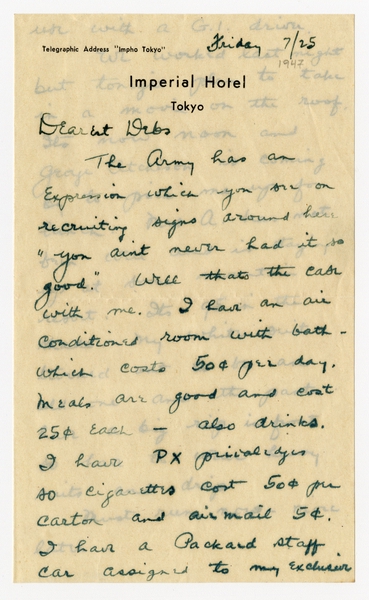 Telegraphic Address "Impho Tokyo"
Friday 7/25
1947
Imperial Hotel
Tokyo
Dearest Debs
The Army has an
expression which you see on
recruiting signs around here
"you aint never had it so
good." Well thats the case
with me. I have an air
conditioned room with bath -
which costs 50¢ per day.
Meals are good and cost
25¢ each - also drinks.
I have PX priviledges
so cigarettes cost 50¢ per
carton and air mail 5¢.
I have a Packard staff
car assigned to my exclusive